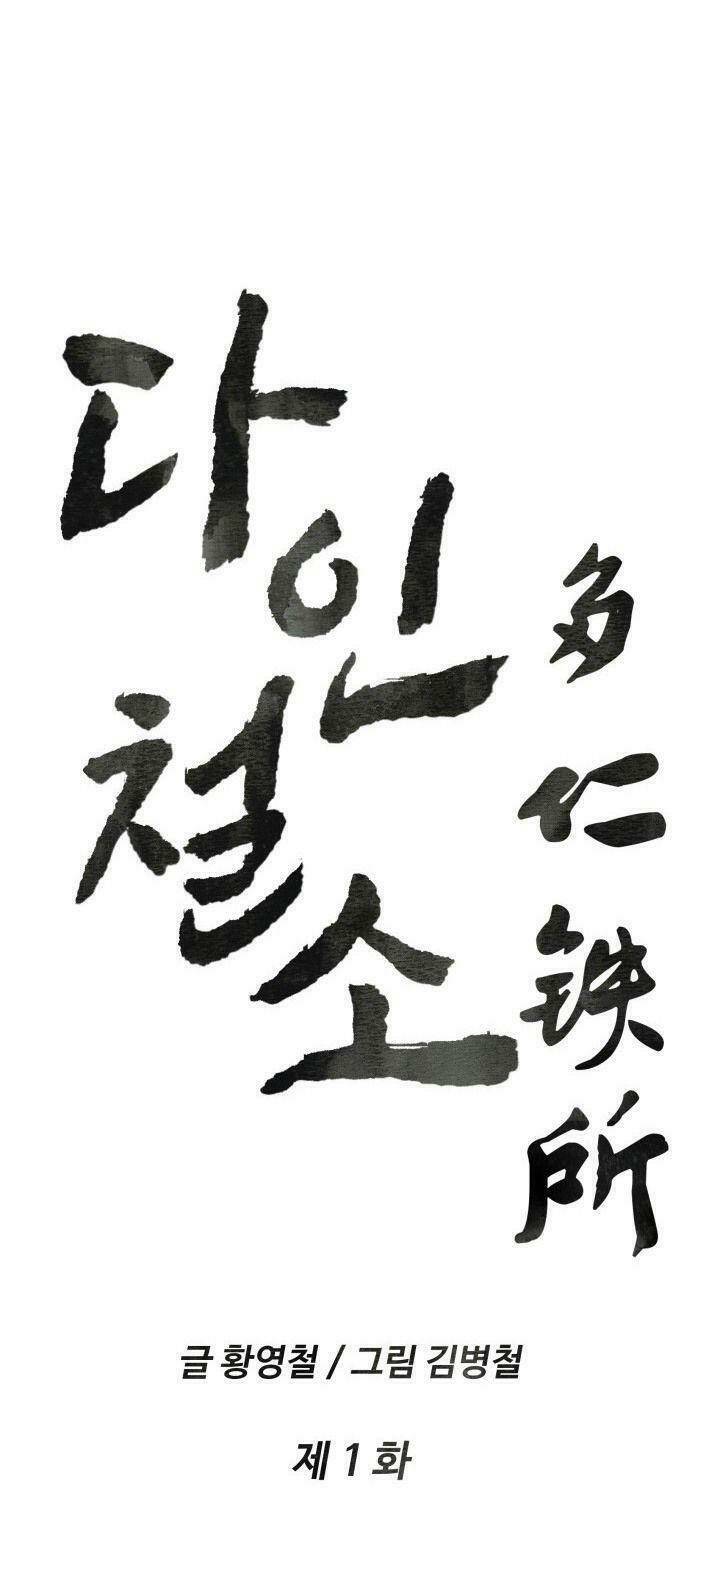 다인
철소
多仁铁所
글 황영철 / 그림 김병철
제 1 화